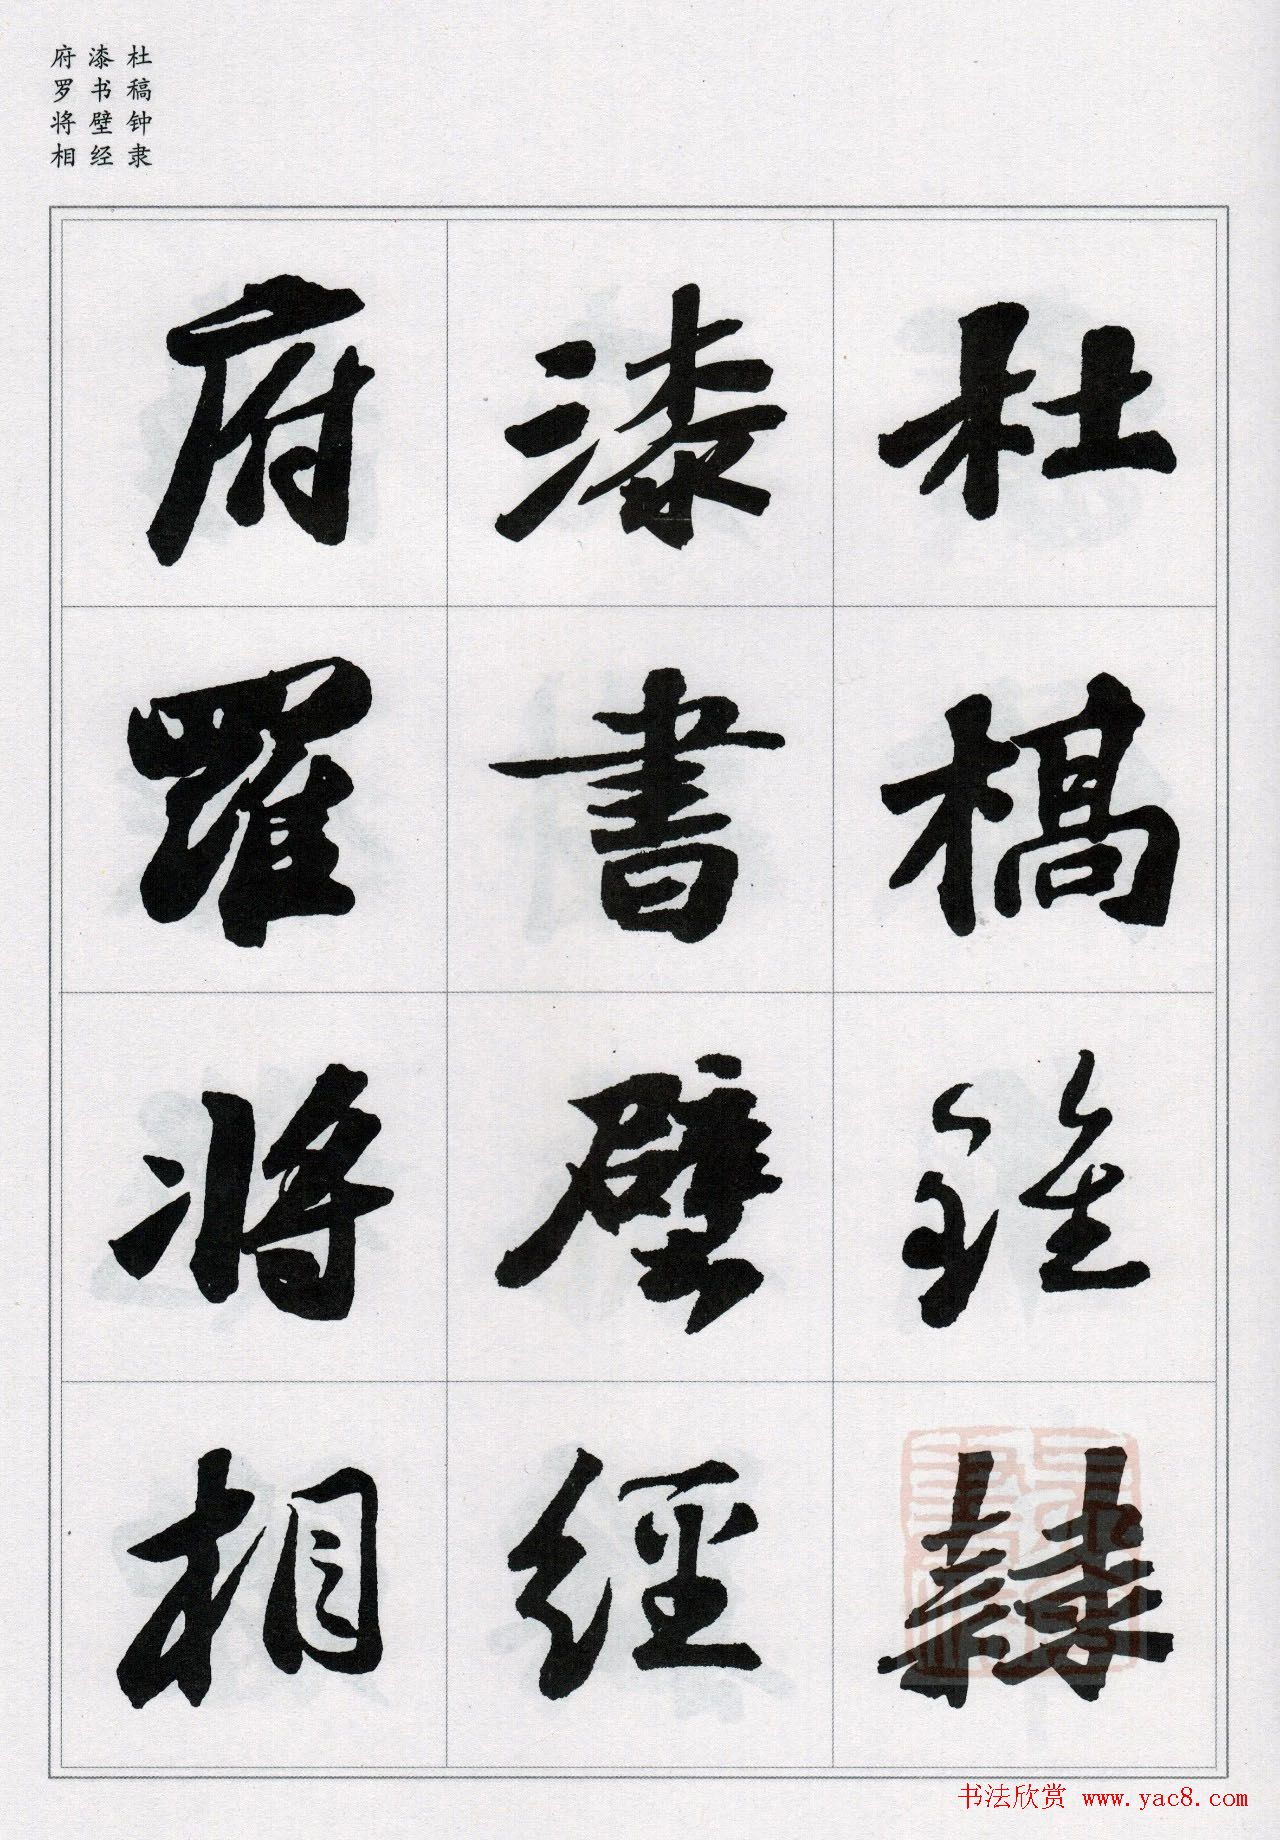 杜稿钟隶
漆书壁经
府罗将相
杜槁鍾隸
漆書壁經
府羅將相
书法欣赏 www.yac8.com